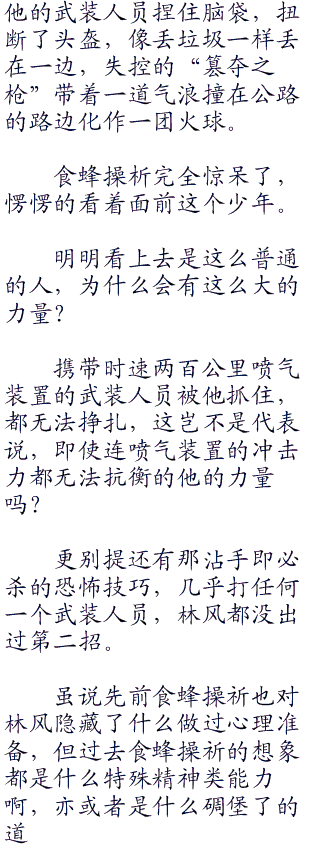 他的武装人员捏住脑袋，扭
断了头盔，像丢垃圾一样丢
在一边，失控的“篡夺之
枪”带着一道气浪撞在公路
的路边化作一团火球。
食蜂操析完全惊呆了，
愣愣的看着面前这个少年。
明明看上去是这么普通
的人，为什么会有这么大的
力量？
携带时速两百公里喷气
装置的武装人员被他抓住，
都无法挣扎，这岂不是代表
说，即使连喷气装置的冲击
力都无法抗衡的他的力量
吗？
更别提还有那沾手即必
杀的恐怖技巧，几乎打任何
一个武装人员，林风都没出
过第二招。
虽说先前食蜂操祈也对
林风隐藏了什么做过心理准
备，但过去食蜂操祈的想象
都是什么特殊精神类能力
啊，亦或者是什么碉堡了的
道